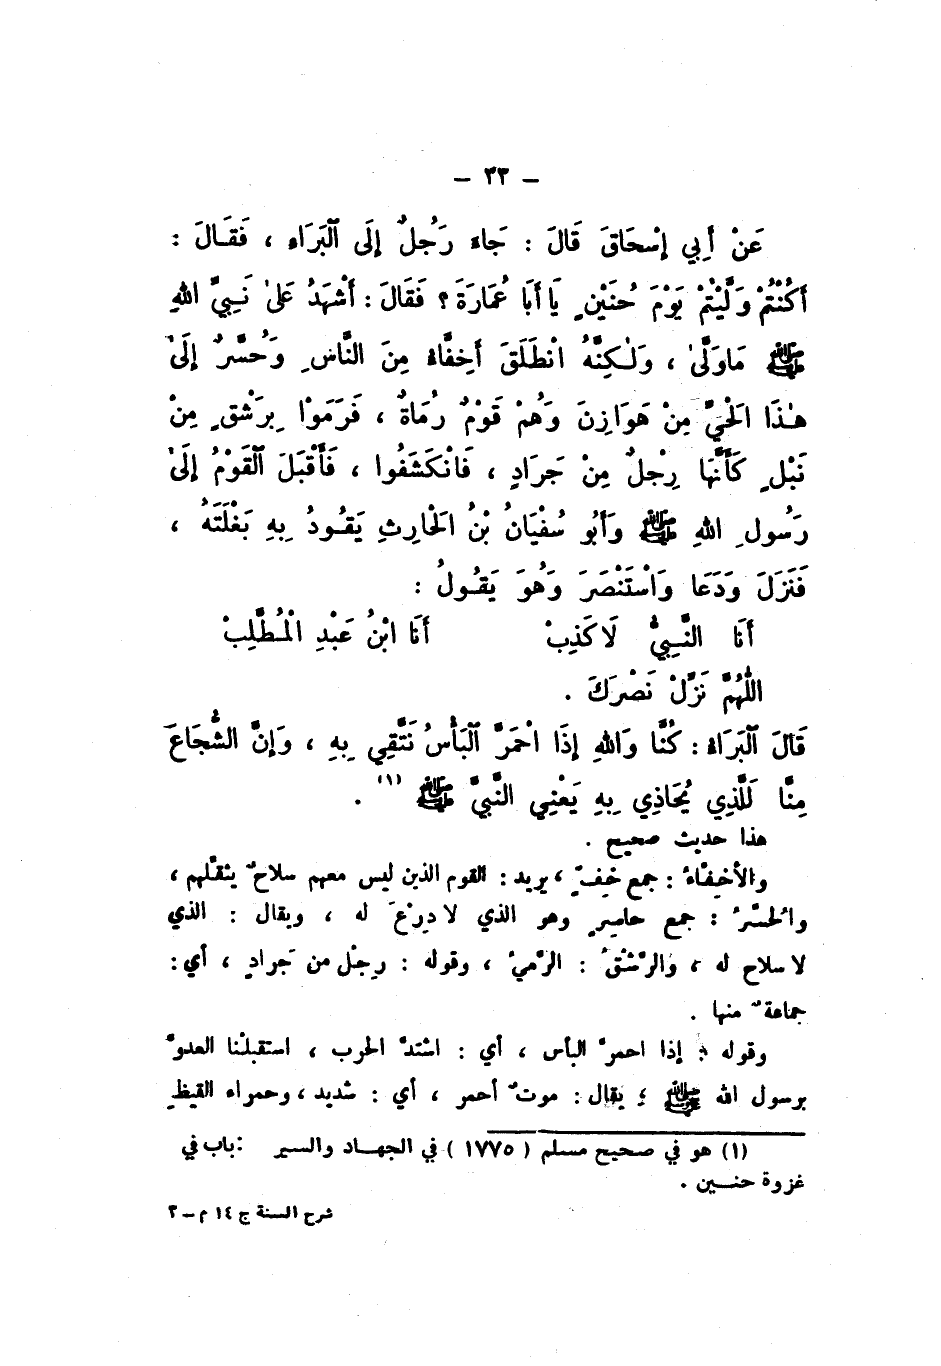 – ٣٣ –
عَنْ أَبِي إِسْحَاقَ قَالَ : جَاءَ رَجُلٌ إِلَى ٱلْبَرَاءِ ، فَقَالَ :
أَكُنْتُمْ وَلَّيْتُمْ يَوْمَ حُنَيْنٍ يَا أَبَا عُمَارَةَ ؟ فَقَالَ : أَشْهَدُ عَلَىٰ نَبِيِّ اللهِ
ﷺ مَاوَلَّىٰ ، وَلٰكِنَّهُ انْطَلَقَ أَخِفَّاءُ مِنَ النَّاسِ وَحُسَّرٌ إِلَىٰ
هٰذَا الْحَيِّ مِنْ هَوَازِنَ وَهُمْ قَوْمٌ رُمَاةٌ ، فَرَمَوْا بِرَشْقٍ مِنْ
نَبْلٍ كَأَنَّهَا رِجْلٌ مِنْ جَرَادٍ ، فَانْكَشَفُوا ، فَأَقْبَلَ ٱلْقَوْمُ إِلَىٰ
رَسُولِ اللهِ ﷺ وَأَبُو سُفْيَانُ بْنُ الْحَارِثِ يَقُودُ بِهِ بَغْلَتَهُ ،
فَنَزَلَ وَدَعَا وَاسْتَنْصَرَ وَهُوَ يَقُولُ :
أَنَا النَّبِيُّ لَا كَذِبْ أَنَا ابْنُ عَبْدِ الْمُطَّلِبْ
اللّٰهُمَّ نَزِّلْ نَصْرَكَ .
قَالَ ٱلْبَرَاءُ : كُنَّا وَاللهِ إِذَا احْمَرَّ ٱلْبَأْسُ نَتَّقِي بِهِ ، وَإِنَّ الشُّجَاعَ
مِنَّا لَلَّذِي يُحَاذِي بِهِ يَعْنِي النَّبِيَّ ﷺ (١) .
هذا حديث صحيح .
والأخِفّاءُ : جمع خِفٍّ ، يريد : القوم الذين ليس معهم سلاحٌ يثقّلهم ،
والحُسَّرُ : جمع حاسِرٍ وهو الذي لا دِرْعَ له ، ويقال : الذي
لا سلاح له ، والرَّشْقُ : الرّميُ ، وقوله : رِجْل من جَرادٍ ، أي :
جماعةٌ منها .
وقوله : إذا احمرَّ البأس ، أي : اشتدَّ الحرب ، استقبلْنا العدوَّ
برسول الله ﷺ ؛ يقال : موتٌ أحمر ، أي : شديد ، وحمراء القيظِ
(١) هو في صحيح مسلم ( ١٧٧٥ ) في الجهاد والسير : باب في
غزوة حنين .
شرح السنة ج ١٤ م – ٣